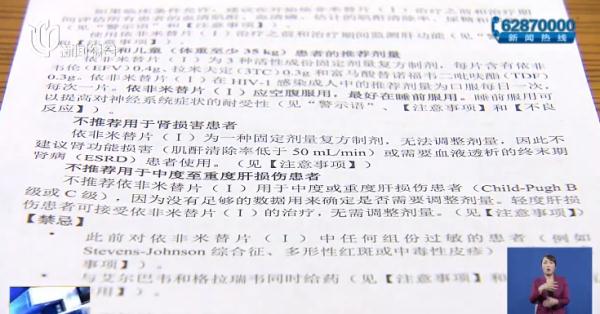 62870000
新闻热线
新闻
如果临床条件允许，建议在开始依非米替片（Ⅰ）治疗之前和治疗期
间评估所有患者的血清肌酐、血清磷、估计的肌酐清除率、尿糖和
使用依非米替片（Ⅰ）治疗之前和治疗期间监测肝功能（见“警
和儿童（体重至少 35 kg）患者的推荐剂量
依非米替片（Ⅰ）为 3 种活性成份固定剂量复方制剂，每片含有依非
韦伦（EFV）0.4g、拉米夫定（3TC）0.3g 和富马酸替诺福韦二吡呋酯（TDF）
0.3g。依非米替片（Ⅰ）在 HIV-1 感染成人中的推荐剂量为口服每日一次，
每次一片。依非米替片（Ⅰ）应空腹服用，最好在睡前服用。睡前服用可
以提高对神经系统症状的耐受性（见“警示语”、【注意事项】和【不良
反应】）。
不推荐用于肾损害患者
依非米替片（Ⅰ）为一种固定剂量复方制剂，无法调整剂量，因此不
建议肾功能损害（肌酐清除率低于 50 mL/min）或需要血液透析的终末期
肾病（ESRD）患者使用。（见【注意事项】）
不推荐用于中度至重度肝损伤患者
不推荐依非米替片（Ⅰ）用于中度或重度肝损伤患者（Child-Pugh B
级或 C 级），因为没有足够的数据用来确定是否需要调整剂量。轻度肝损
伤患者可接受依非米替片（Ⅰ）的治疗，无需调整剂量。（见【注意事项】）
【禁忌】
• 此前对依非米替片（Ⅰ）中任何组份过敏的患者（例如
Stevens-Johnson 综合征、多形性红斑或中毒性皮疹）
事项】）。
• 与艾尔巴韦和格拉瑞韦同时给药（见【注意事项】和
用】）。